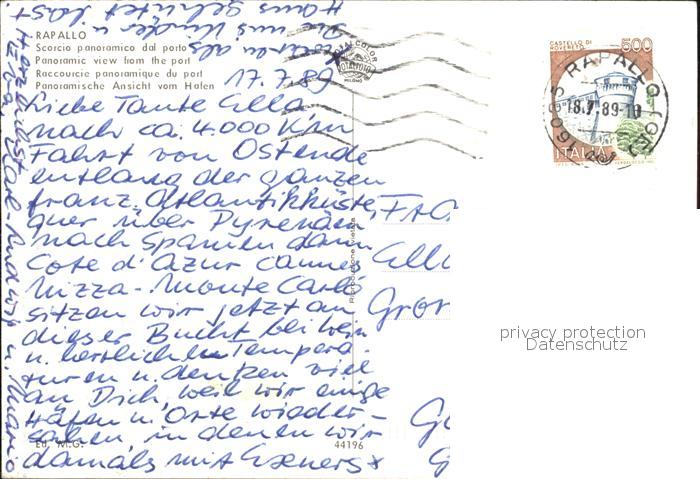 RAPALLO
Scorcio panoramico dal porto
Panoramic view from the port
Raccourcie panoramique du port
Panoramische Ansicht vom Hafen
17.7.89
Liebe Tante Ella
nach ca. 4.000 Km
Fahrt von Ostende
entlang der ganzen
franz. Atlantikküste,
quer über Pyrenäen
nach Spanien dann
Cote d'Azur Cannes
Nizza - Monte Carlo
sitzen wir jetzt an
dieser Bucht bei Wein
u. herrlichen Tempera-
turen u. denken viel
an Dich, weil wir einige
Häfen u. Orte wieder-
sahen, in denen wir
damals mit Exeners x
x waren als
Du uns Kinder u.
Haus gehütet hast
Herzlichst
Karl Rudolf u.
Ed. M.G.
44196
Riproduzione vietata
DALCOLOR
MILANO
CASTELLO DI
ROVERETO
600
ITALIA
16035 RAPALLO (GE)
18.7.89-19
Ella
privacy protection
Datenschutz